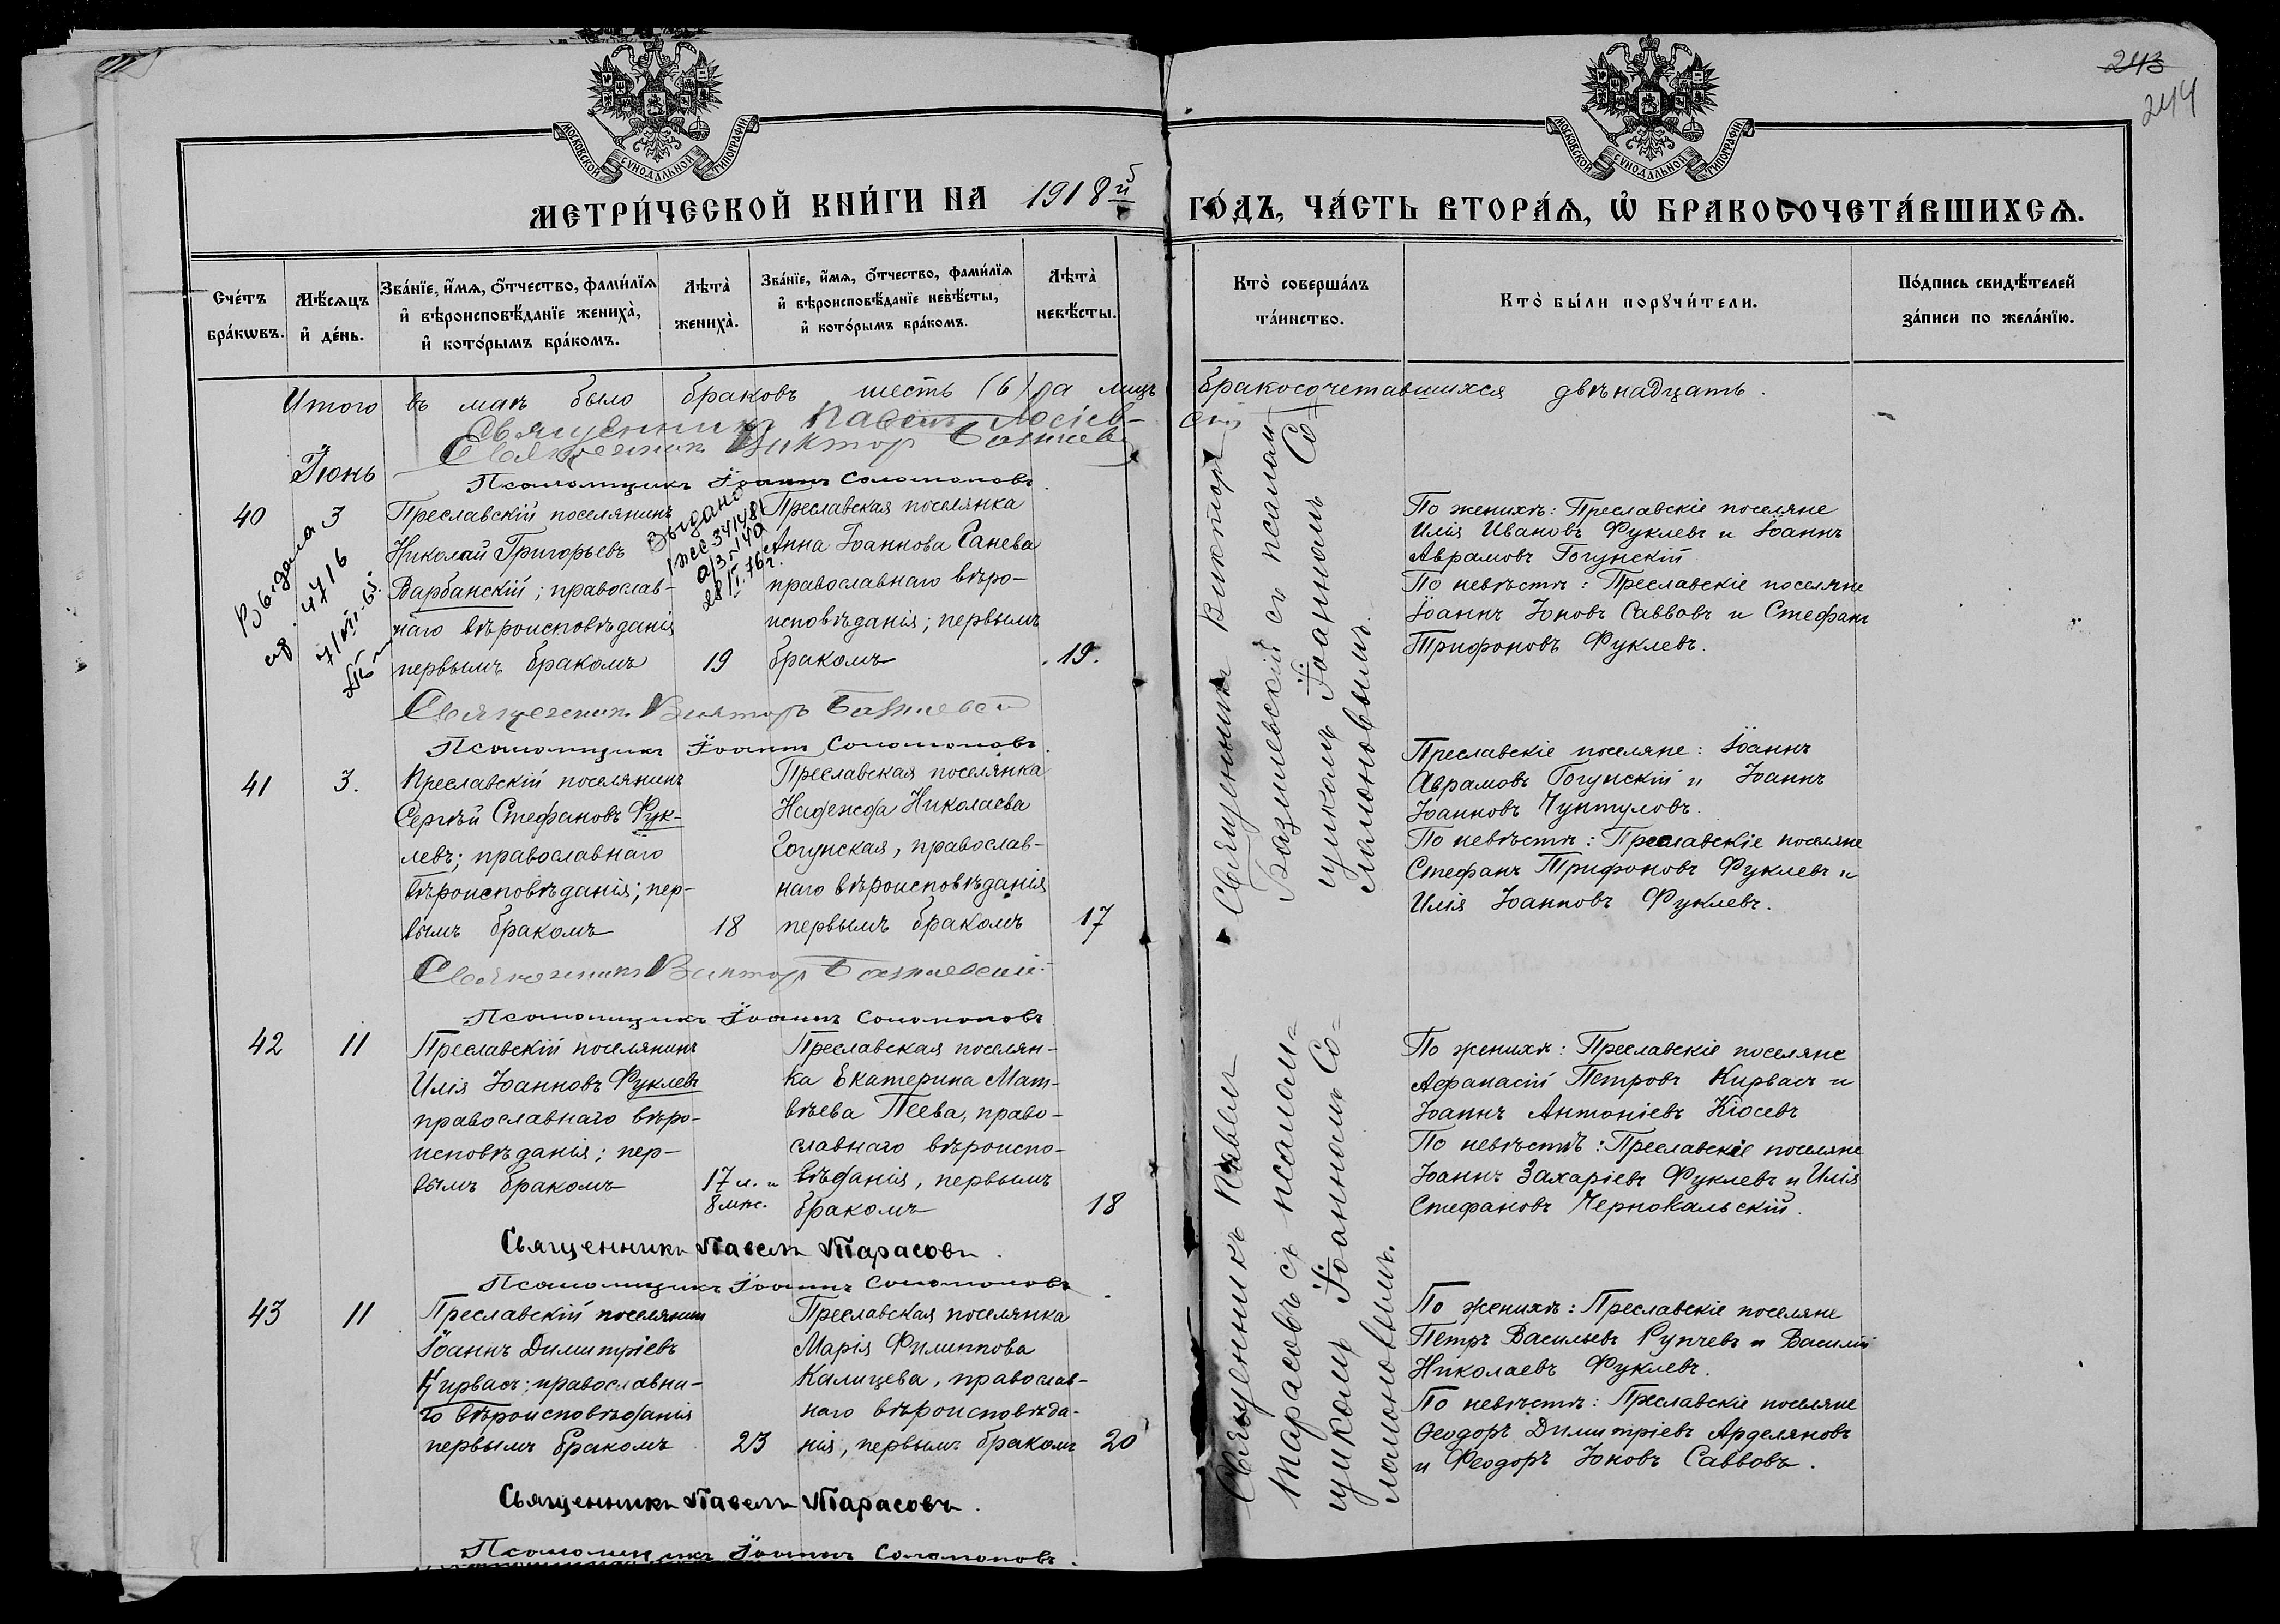 243
244
МОСКОВСКОЙ СѴНОДАЛЬНОЙ ТИПОГРАФІИ
МОСКОВСКОЙ СѴНОДАЛЬНОЙ ТИПОГРАФІИ
МЕТРИ́ЧЕСКОЙ КНИ́ГИ НА 1918й ГО́ДЪ, ЧА́СТЬ ВТОРА́Ѧ, Ѡ҆ БРАКОСОЧЕТА́ВШИХСѦ.
Сче́тъ
бра́кѡвъ.
Мѣ́сѧцъ
и҆ де́нь.
Зва́нїе, и҆́мѧ, ѻ҆́тчество, фами́лїѧ
и҆ вѣроисповѣ́данїе жениха̀,
и҆ кото́рымъ бра́комъ.
Лѣта̀
жениха̀.
Зва́нїе, и҆́мѧ, ѻ҆́тчество, фами́лїѧ
и҆ вѣроисповѣ́данїе невѣ́сты,
и҆ кото́рымъ бра́комъ.
Лѣта̀
невѣ́сты.
Кто̀ соверша́лъ
та́инство.
Кто̀ бы́ли порꙋчи́тели.
По́дпись свидѣ́телей
за́писи по жела́нїю.
Итого въ маѣ было браковъ шесть (6) а лицъ бракосочетавшихся двѣнадцать.
Священникъ Павелъ
Священникъ Виктор
Іюнь
Псаломщикъ Іоаннъ Соломоновъ.
40
3
Выдана
4716
Преславскій поселянинъ
Николай Григорьевъ
Варбанскій; православ-
наго вѣроисповѣданія
первымъ бракомъ
19
Выдано
28/I.76г.
Преславская поселянка
Анна Іоаннова Ганева
православнаго вѣро-
исповѣданія; первымъ
бракомъ
19.
Священникъ Викторъ
Базилевскій съ псалом-
щикомъ Іоанномъ Со-
ломоновымъ.
По женихѣ: Преславскіе поселяне
Илія Ивановъ Фуклевъ и Іоаннъ
Аврамовъ Гогунскій
По невѣстѣ: Преславскіе поселяне
Іоаннъ Іоновъ Саввовъ и Стефанъ
Трифоновъ Фуклевъ.
Священникъ Викторъ Базилевскій
Псаломщикъ Іоаннъ Соломоновъ.
41
3.
Преславскій поселянинъ
Сергѣй Стефановъ Фук-
левъ; православнаго
вѣроисповѣданія; пер-
вымъ бракомъ
18
Преславская поселянка
Надежда Николаева
Гогунская, православ-
наго вѣроисповѣданія
первымъ бракомъ
17
Преславскіе поселяне: Іоаннъ
Аврамовъ Гогунскій и Іоаннъ
Іоанновъ Чунтуловъ.
По невѣстѣ: Преславскіе поселяне
Стефанъ Трифоновъ Фуклевъ и
Илія Іоанновъ Фуклевъ.
Священникъ Виктор Базилевскій.
Псаломщикъ Іоаннъ Соломоновъ
42
11
Преславскій поселянинъ
Илія Іоанновъ Фуклевъ
православнаго вѣро-
исповѣданія; пер-
вымъ бракомъ
17 л. и
8 мѣс.
Преславская поселян-
ка Екатерина Мат-
вѣева Пеева, право-
славнаго вѣроиспо-
вѣданія, первымъ
бракомъ
18
Священникъ Павелъ
Тарасовъ съ псалом-
щикомъ Іоанномъ Со-
ломоновымъ.
По женихѣ: Преславскіе поселяне
Афанасій Петровъ Кирвасъ и
Іоаннъ Антоніевъ Кіосевъ
По невѣстѣ: Преславскіе поселяне
Іоаннъ Захаріевъ Фуклевъ и Илія
Стефановъ Чернокальскій.
Священникъ Павелъ Тарасовъ.
Псаломщикъ Іоаннъ Соломоновъ
43
11
Преславскій поселянинъ
Іоаннъ Димитріевъ
Кирвасъ; православна-
го вѣроисповѣданія
первымъ бракомъ
23
Преславская поселянка
Марія Филиппова
Калицева, православ-
наго вѣроисповѣда-
нія, первымъ бракомъ
20
По женихѣ: Преславскіе поселяне
Петръ Васильевъ Рупчевъ и Василій
Николаевъ Фуклевъ.
По невѣстѣ: Преславскіе поселяне
Ѳеодоръ Димитріевъ Арделяновъ
и Феодоръ Іоновъ Саввовъ.
Священникъ Павелъ Тарасовъ.
Псаломщикъ Іоаннъ Соломоновъ.